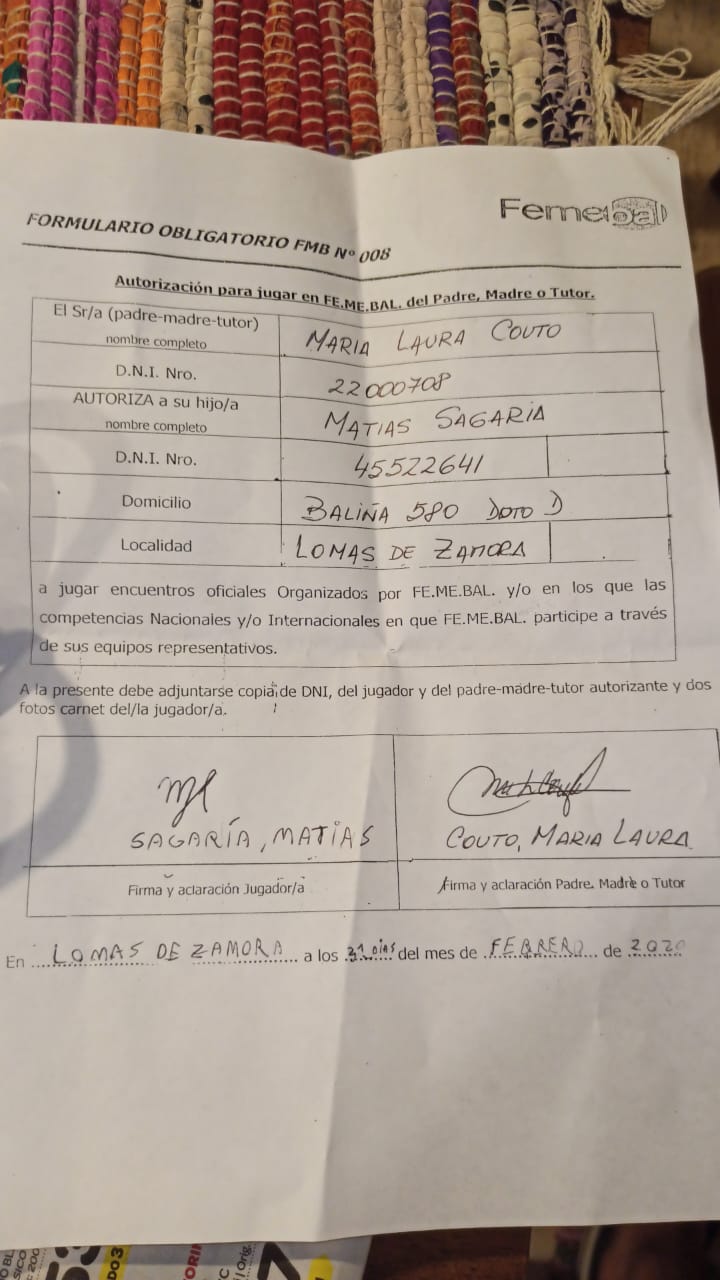 Femebal
FORMULARIO OBLIGATORIO FMB Nº 008
Autorización para jugar en FE.ME.BAL. del Padre, Madre o Tutor.
El Sr/a (padre-madre-tutor)
nombre completo
MARIA LAURA COUTO
D.N.I. Nro.
22000708
AUTORIZA a su hijo/a
nombre completo
MATIAS SAGARIA
D.N.I. Nro.
45522641
Domicilio
BALIÑA 580 DOTO D
Localidad
LOMAS DE ZAMORA
a jugar encuentros oficiales Organizados por FE.ME.BAL. y/o en los que las
competencias Nacionales y/o Internacionales en que FE.ME.BAL. participe a través
de sus equipos representativos.
A la presente debe adjuntarse copia de DNI, del jugador y del padre-madre-tutor autorizante y dos
fotos carnet del/la jugador/a.
SAGARÍA, MATIAS
COUTO, MARIA LAURA
Firma y aclaración Jugador/a
Firma y aclaración Padre. Madre o Tutor
En LOMAS DE ZAMORA a los días del mes de FEBRERO de 2020